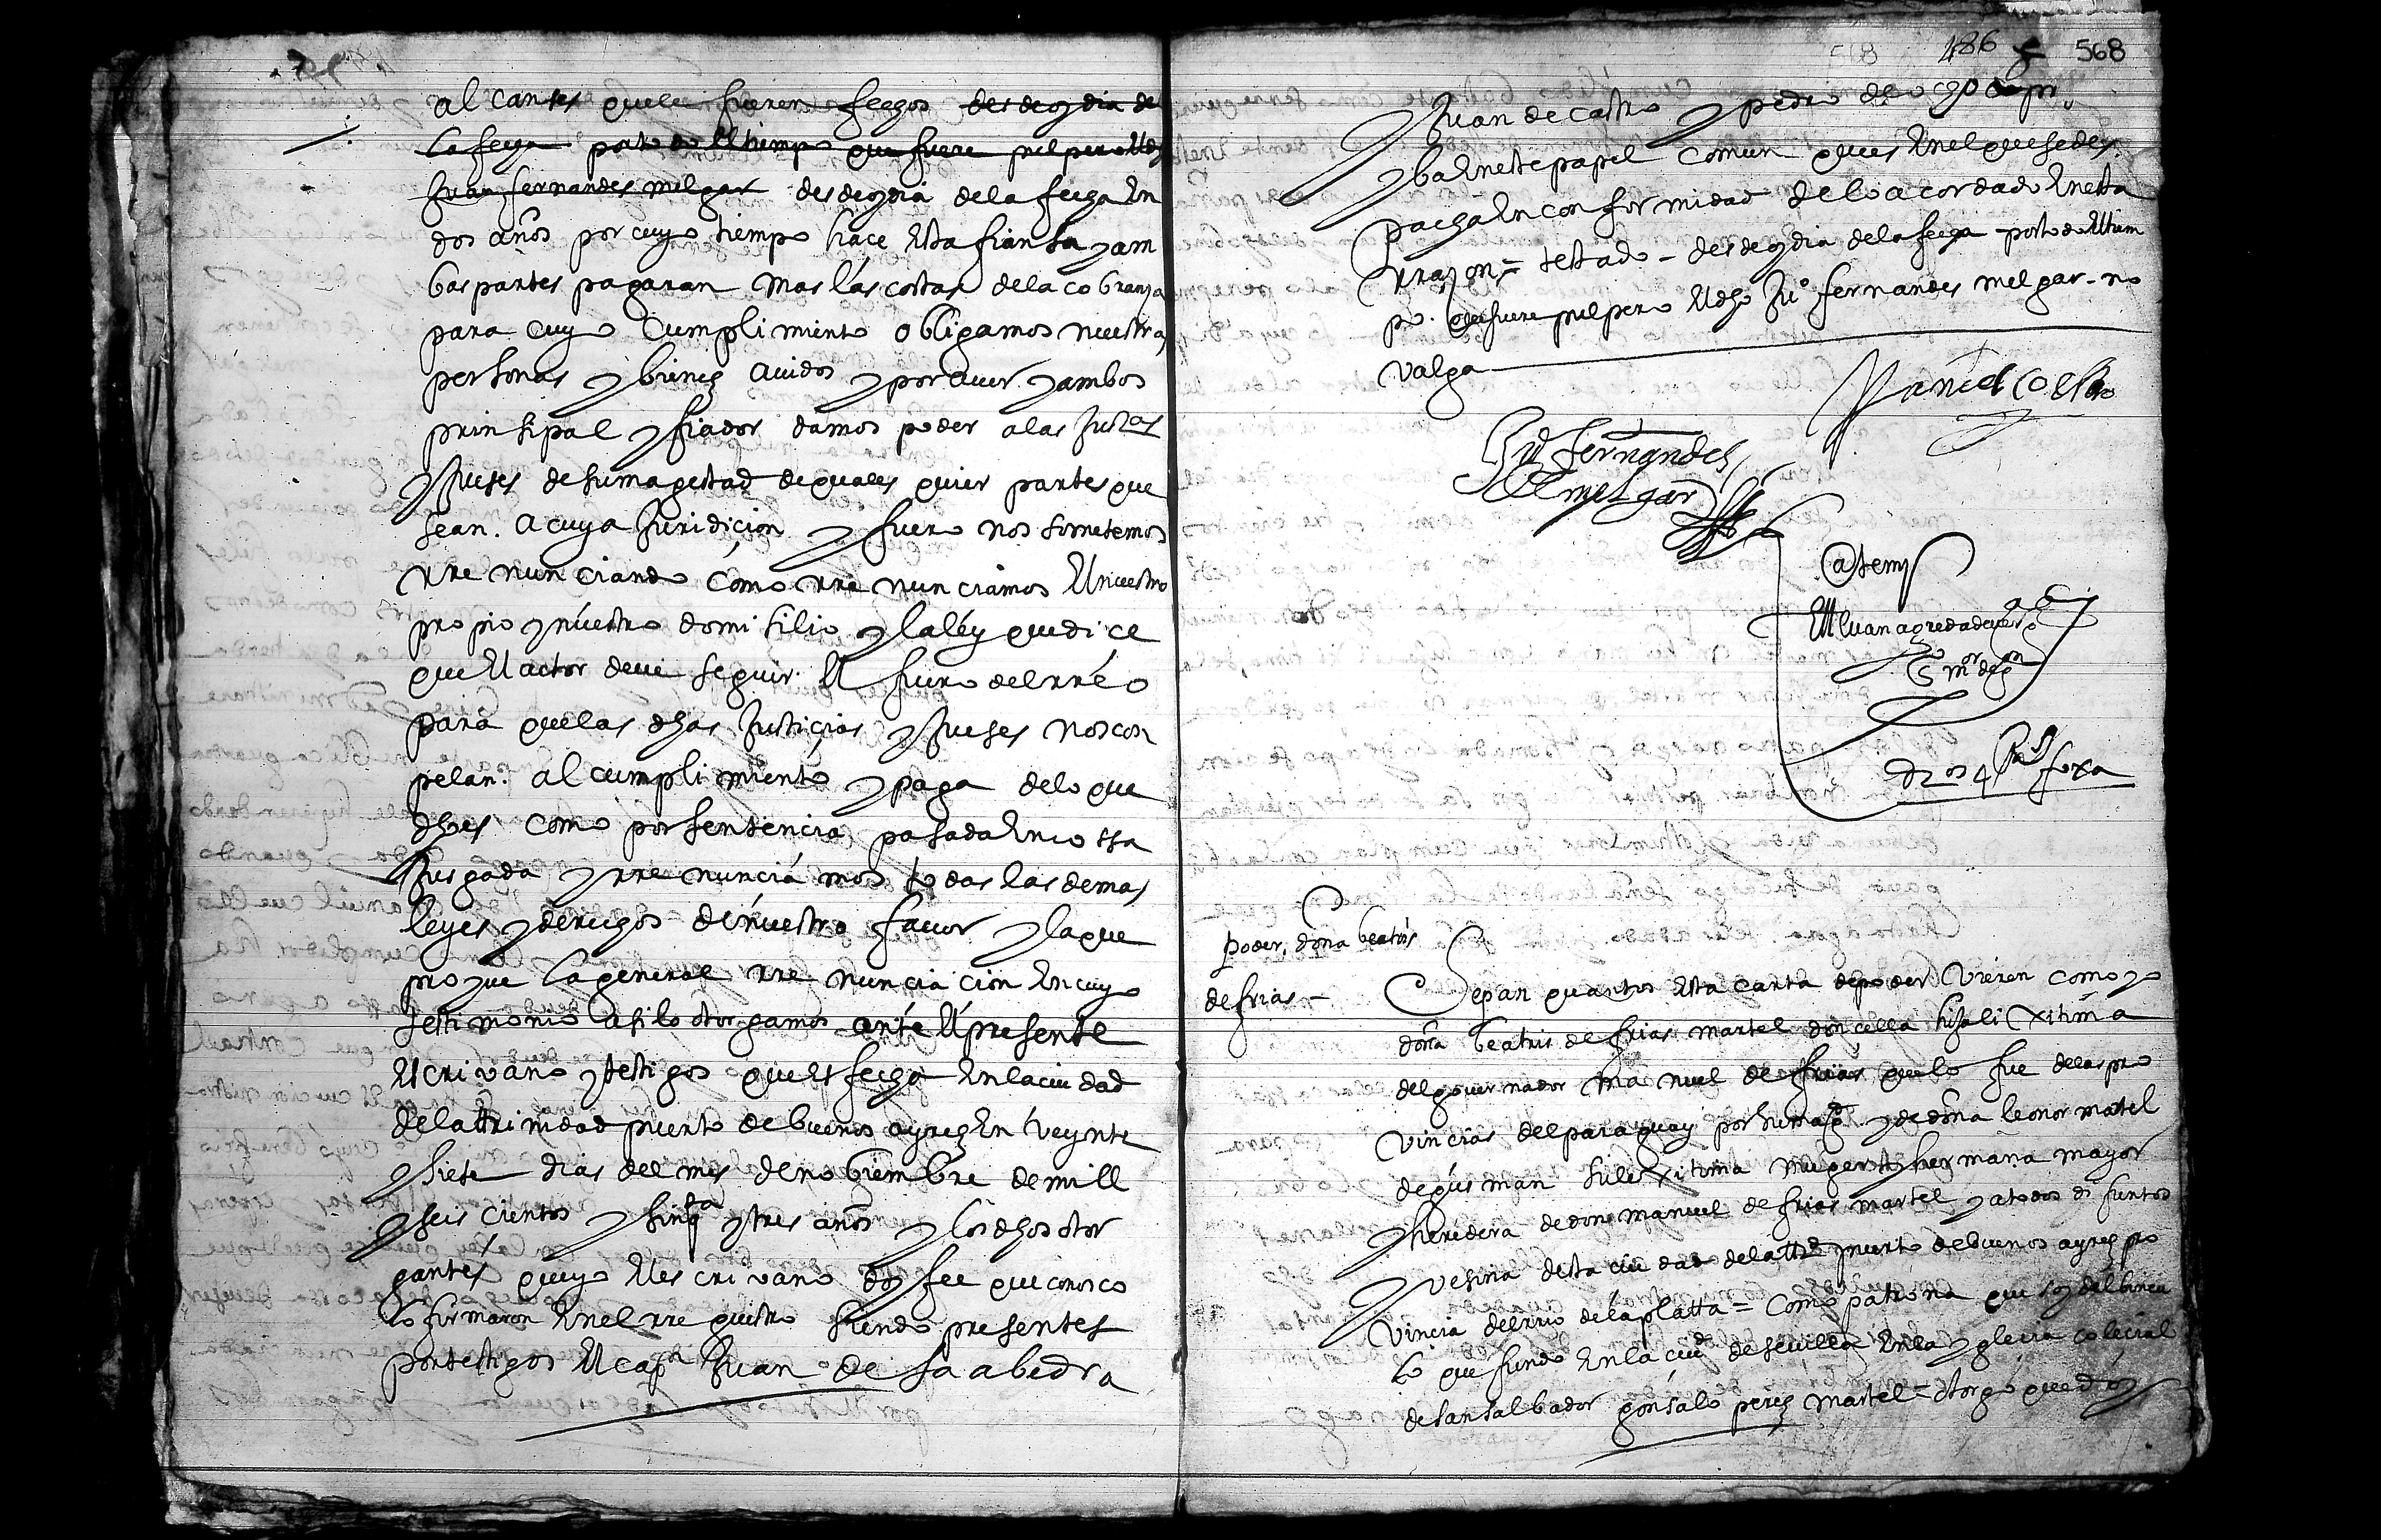 alcanses quele fueren fechos desde oy dia de
la fecha por todo el tiempo que fuere pulpero el dho
Juan fernandes melgar desde oy dia dela fecha En
dos años por cuyo tiempo hace Esta fiansa y am
bas partes pagaran mas las costas dela cobranza
para cuyo Cumplimiento obligamos nuestras
personas y bienes auidos y por auer y ambos
prinsipal y fiador damos poder alas Jusas
y Jueses de su magestad de quales quier partes que
sean. a cuya Juridicion y fuero nos sometemos
rrenunciando como rrenunciamos El nuestro
propio y nuestro domisilio y la ley que dice
que El actor deue seguir El fuero del rreo
para que las dhas Justicias y Jueses nos con
pelan. al cumplimiento y paga delo que
dho es como por sentencia pasada En cossa
Jusgada y rrenunciamos todas las demas
leyes y derechos de nuestro fauor y la que
proyue la general rrenunciacion En cuyo
testimonio asi lo otorgamos ante El presente
Escrivano y testigos que Es fecho En la ciudad
dela trinidad puerto de buenos ayres En veynte
y siete dias del mes de nobiembre de mill
y seis cientos y sinqta y tres años y los dhos otor
gantes que yo El escrivano doy fee que conosco
lo firmaron En el rregistro siendo presentes
por testigos El capn Juan de saabedra
486 568
y Juan de castro y pedro de
y ba En este papel comun ques En el que se des
pacha En conformidad delo acordado En esta
rrazon = testado - desde oy dia dela fecha - por todo El tiem
po. que fuere pulpero El dho Juo fernandes melgar - no
valga
Manuel Coello
Ju fernandes
melgar
Ante mi
Juan agreda de vergara
S mor de gn
dros 4 Rs foxa
poder, doña beatris
de frias -
Sepan quantos Esta carta de poder Vieren como yo
doña beatris de frias martel donçella hija lixitima
del gouernador manuel de frias que lo fue delas pro
vincias del paraguay por su magd y de doña leonor martel
de gusman su lexitima muger y hermana mayor
y heredera de don manuel de frias martel ya todos difuntos
y vesina desta ciudad dela ttd puerto de buenos ayres pro
vincia del rrio dela platta = Como patrona que soy del bincu
lo que fundo En la ciud de seuilla En la yglecia colecial
de san salbador gonsalo peres martel = otorgo que doy